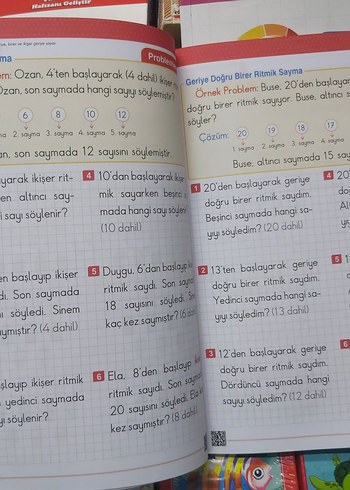 Hafızanı Geliştir
Problem
ma
em: Ozan, 4'ten başlayarak (4 dahil) ikişer
Ozan, son saymada hangi sayıyı söylemiştir?
6 8 10 12
2. sayma 3. sayma 4. sayma 5. sayma
an, son saymada 12 sayısını söylemiştir.
yarak ikişer rit-
en altıncı say-
i sayı söylenir?
4 10'dan başlayarak ikişer
mik sayarken beşinci
mada hangi sayı söylenir
(10 dahil)
en başlayıp ikişer
di. Son saymada
söyledi. Sinem
ymıştır? (4 dahil)
5 Duygu, 6'dan başlayıp
ritmik saydı. Son
18 sayısını söyledi.
kaç kez saymıştır?
şlayıp ikişer ritmik
yedinci saymada
yı söylenir?
6 Ela, 8'den başlayıp
ritmik saydı. Son
20 sayısını söyledi. Ela
kez saymıştır? (8 dahil)
Geriye Doğru Birer Ritmik Sayma
Örnek Problem: Buse, 20'den başlayar
doğru birer ritmik sayıyor. Buse, altıncı s
söyler?
Çözüm: 20 19 18 17
1. sayma 2. sayma 3. sayma 4. sayma
Buse, altıncı saymada 15 say
1 20'den başlayarak geriye
doğru birer ritmik saydım.
Beşinci saymada hangi sa-
yıyı söyledim? (20 dahil)
4 20
2 13'ten başlayarak geriye
doğru birer ritmik saydım.
Yedinci saymada hangi sa-
yıyı söyledim? (13 dahil)
5
3 12'den başlayarak geriye
doğru birer ritmik saydım.
Dördüncü saymada hangi
sayıyı söyledim? (12 dahil)
6